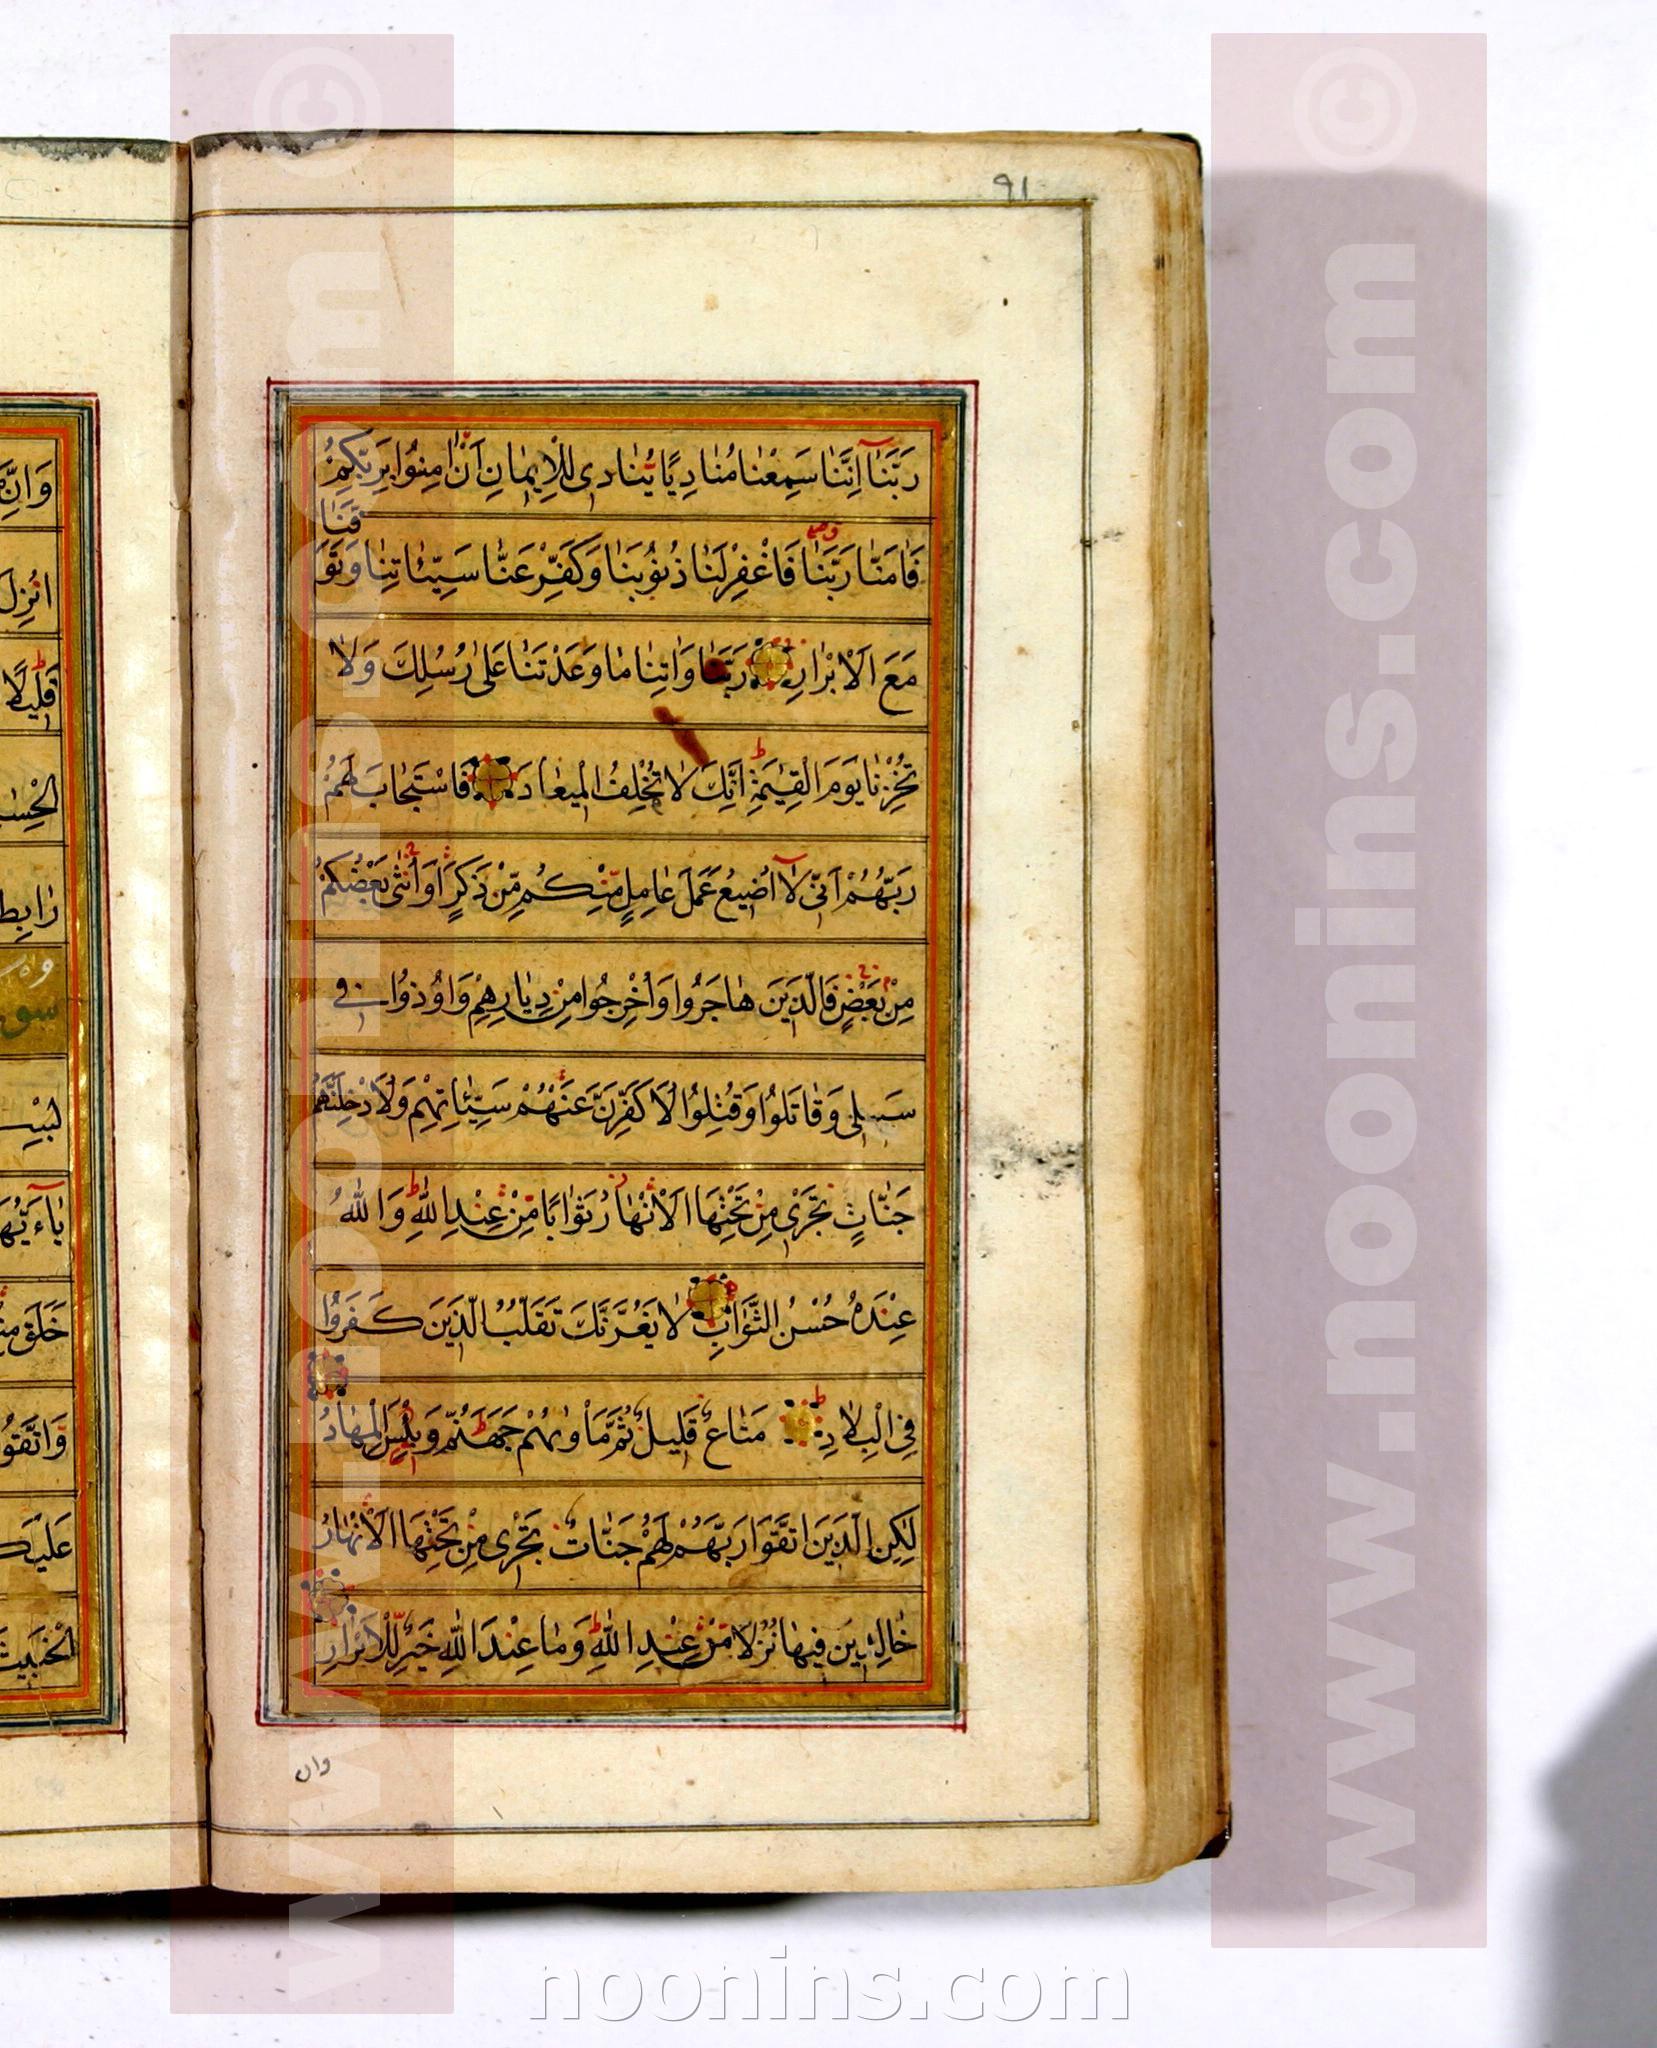 ٩١
رَبَّنَا اِنَّنَا سَمِعْنَا مُنَادِيًا يُنَادِى لِلْاِيمَانِ اَنْ اٰمِنُوا بِرَبِّكُمْ
فَاٰمَنَّا رَبَّنَا فَاغْفِرْلَنَا ذُنُوبَنَا وَكَفِّرْعَنَّا سَيِّئَاتِنَا وَتَوَفَّنَا
مَعَ الْاَبْرَارِ رَبَّنَا وَاٰتِنَا مَا وَعَدْتَنَا عَلٰى رُسُلِكَ وَلَا
تُخْزِنَا يَوْمَ الْقِيٰمَةِ اِنَّكَ لَا تُخْلِفُ الْمِيعَادَ فَاسْتَجَابَ لَهُمْ
رَبُّهُمْ اَنِّى لَا اُضِيعُ عَمَلَ عَامِلٍ مِّنْكُمْ مِّنْ ذَكَرٍ اَوْ اُنْثٰى بَعْضُكُمْ
مِنْ بَعْضٍ فَالَّذِينَ هَاجَرُوا وَاُخْرِجُوا مِنْ دِيَارِهِمْ وَاُوذُوا فِى
سَبِيلِى وَقَاتَلُوا وَقُتِلُوا لَاُكَفِّرَنَّ عَنْهُمْ سَيِّئَاتِهِمْ وَلَاُدْخِلَنَّهُمْ
جَنَّاتٍ تَجْرِى مِنْ تَحْتِهَا الْاَنْهَارُ ثَوَابًا مِّنْ عِنْدِ اللّٰهِ وَاللّٰهُ
عِنْدَهُ حُسْنُ الثَّوَابِ لَا يَغُرَّنَّكَ تَقَلُّبُ الَّذِينَ كَفَرُوا
فِى الْبِلَادِ مَتَاعٌ قَلِيلٌ ثُمَّ مَأْوٰيهُمْ جَهَنَّمُ وَبِئْسَ الْمِهَادُ
لٰكِنِ الَّذِينَ اتَّقَوْا رَبَّهُمْ لَهُمْ جَنَّاتٌ تَجْرِى مِنْ تَحْتِهَا الْاَنْهَارُ
خَالِدِينَ فِيهَا نُزُلًا مِّنْ عِنْدِ اللّٰهِ وَمَا عِنْدَ اللّٰهِ خَيْرٌ لِّلْاَبْرَارِ
وان
قَلِيلًا
عَلَيْكُ
www.noonins.com ©
www.noonins.com ©
noonins.com